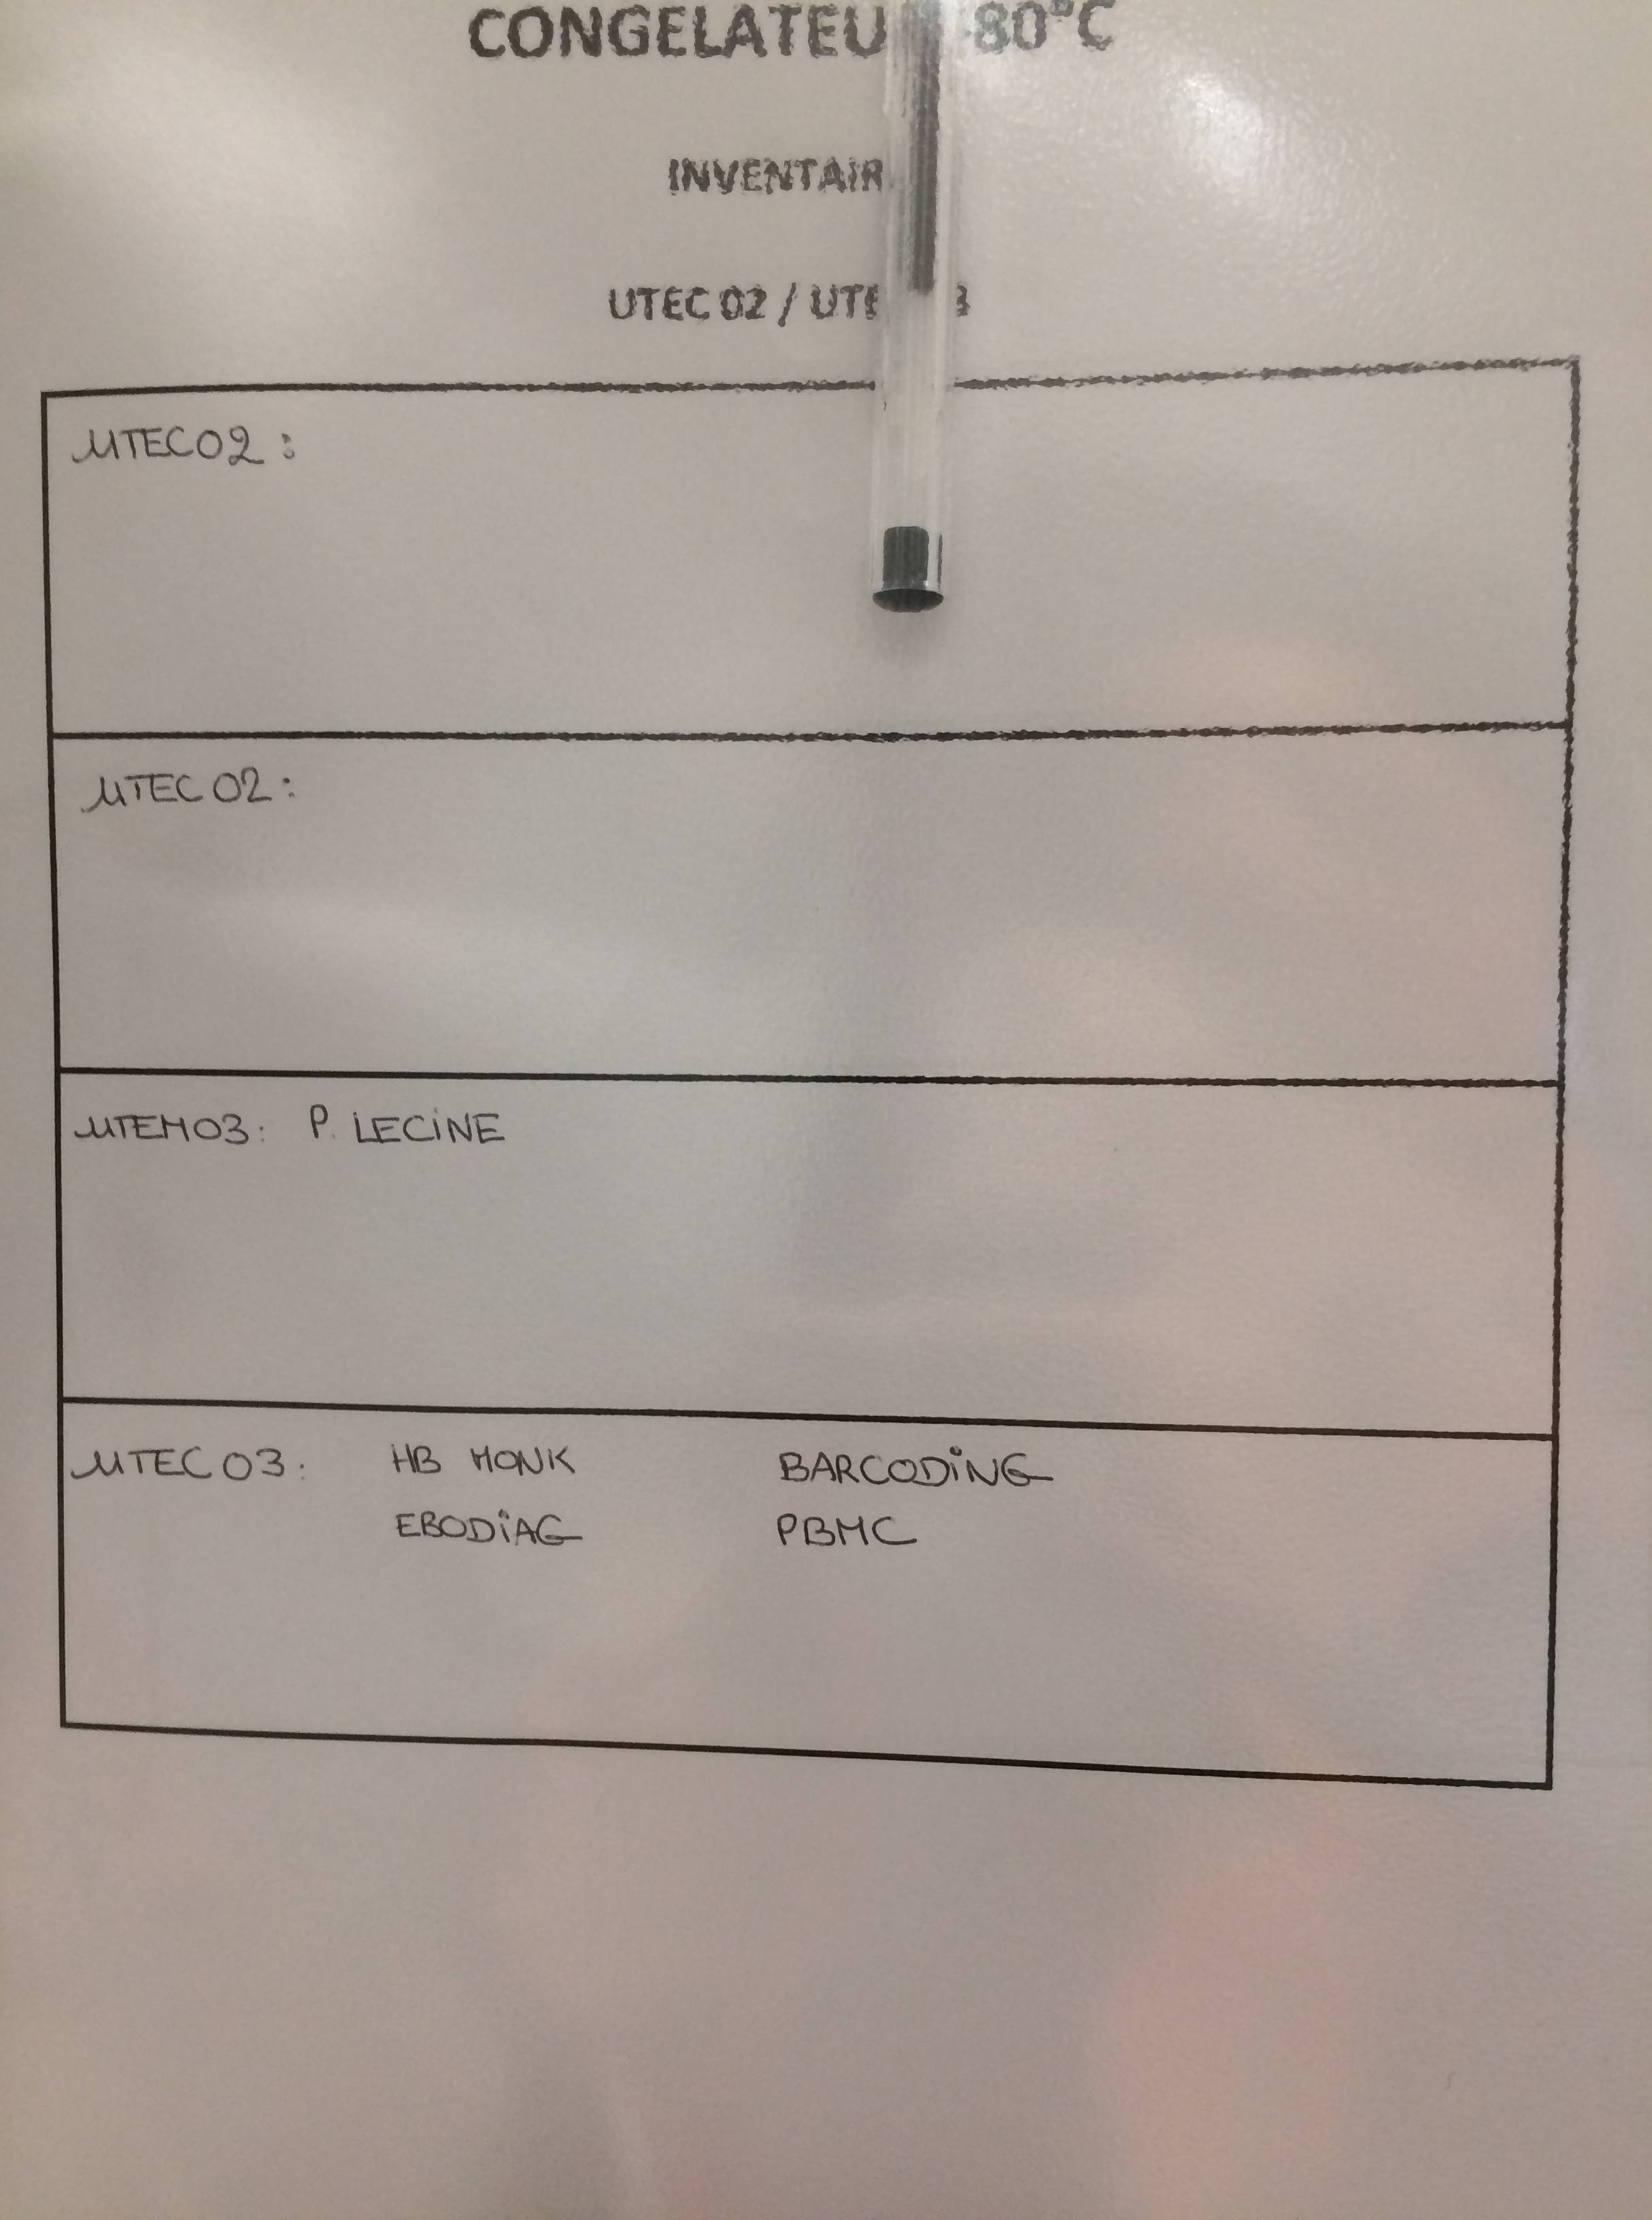 CONGELATEU 80°C
INVENTAIR
UTEC 02 / UTE 3
UTEC02 :
UTEC 02 :
UTEM03 : P. LECINE
UTEC 03 : HB MONK BARCODING
EBODIAG PBMC